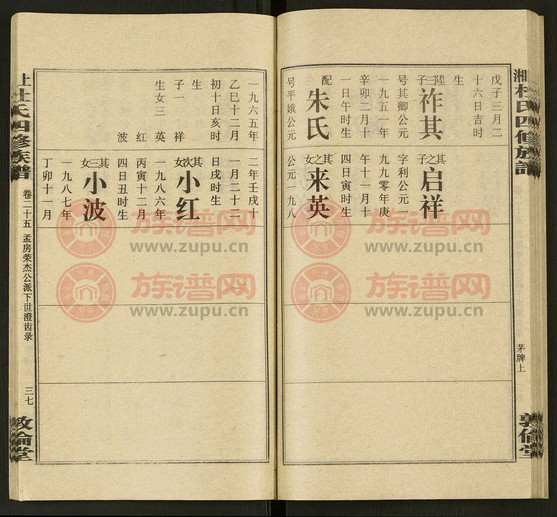 湘杜氏四修族譜
茅牌上
敦倫堂
戊子三月二
十六日吉时
生
陞三子
祚其
号其卿公元
一九五一年
辛卯二月十
一日午时生
配
朱氏
号平娥公元
一九六五年
乙巳十二月
初十日亥时
生子一祥
生女三英
红
波
其子
启祥
字利公元一
九九零年庚
午十一月十
四日寅时生
其之女
来英
公元一九八
二年壬戌十
一月二十二
日戌时生
其次女
小红
一九八六年
丙寅十二月
四日丑时生
其三女
小波
一九八七年
丁卯十一月
上杜氏四修族譜
卷二十五
孟房荣杰公派下世澄齿录
三七
敦倫堂
族谱网
www.zupu.cn
族谱网
www.zupu.cn
族谱网
www.zupu.cn
族谱网
www.zupu.cn